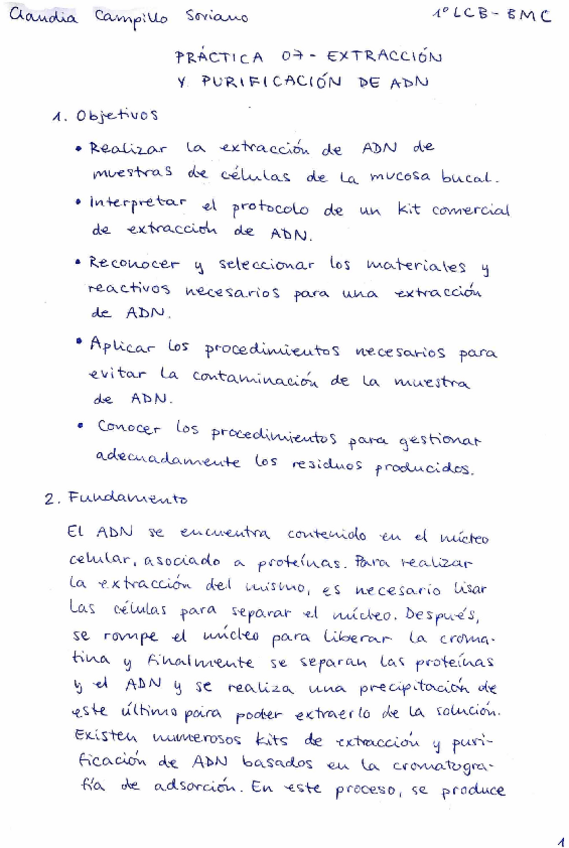 Claudia Campillo Soriano 1º LCB - BMC
PRÁCTICA 07 - EXTRACCIÓN
Y PURIFICACIÓN DE ADN
1. Objetivos
• Realizar la extracción de ADN de
muestras de células de la mucosa bucal.
• Interpretar el protocolo de un kit comercial
de extracción de ADN.
• Reconocer y seleccionar los materiales y
reactivos necesarios para una extracción
de ADN.
• Aplicar los procedimientos necesarios para
evitar la contaminación de la muestra
de ADN.
• Conocer los procedimientos para gestionar
adecuadamente los residuos producidos.
2. Fundamento
El ADN se encuentra contenido en el núcleo
celular, asociado a proteínas. Para realizar
la extracción del mismo, es necesario lisar
las células para separar el núcleo. Después,
se rompe el núcleo para liberar la croma-
tina y finalmente se separan las proteínas
y el ADN y se realiza una precipitación de
este último para poder extraerlo de la solución.
Existen numerosos kits de extracción y puri-
ficación de ADN basados en la cromatogra-
fía de adsorción. En este proceso, se produce
1